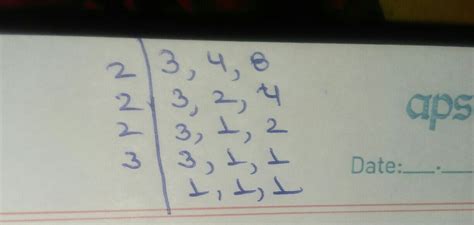 2 | 3, 4, 8
2 | 3, 2, 4
2 | 3, 1, 2
3 | 3, 1, 1
1, 1, 1
aps
Date:__.__